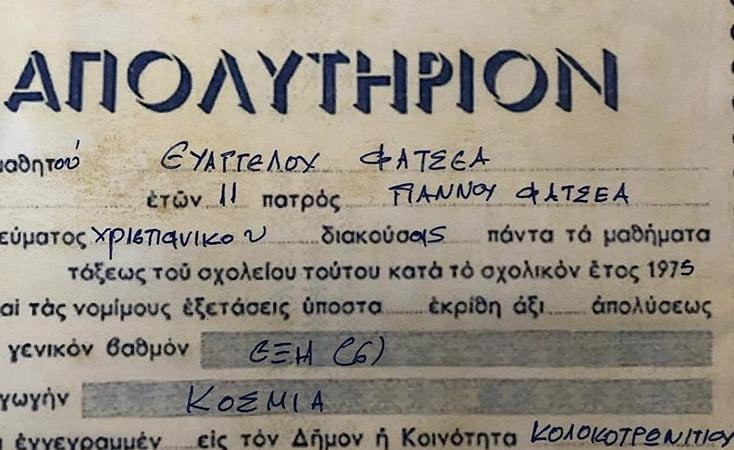 ΑΠΟΛΥΤΗΡΙΟΝ
μαθητού ΕΥΑΓΓΕΛΟΥ ΦΑΤΣΕΑ
ἐτῶν 11 πατρός ΓΙΑΝΝΟΥ ΦΑΤΣΕΑ
εύματος χριστιανικου διακούσας πάντα τά μαθήματα
τάξεως τοῦ σχολείου τούτου κατά τό σχολικόν ἔτος 1975
αί τάς νομίμους ἐξετάσεις ὑποστα ἐκρίθη ἄξι ἀπολύσεως
γενικόν βαθμόν ΕΞΗ (6)
γωγήν ΚΟΣΜΙΑ
ἐγγεγραμμέν εἰς τόν Δῆμον ἤ Κοινότητα ΚΟΛΟΚΟΤΡΩΝΙΤΙΟΥ